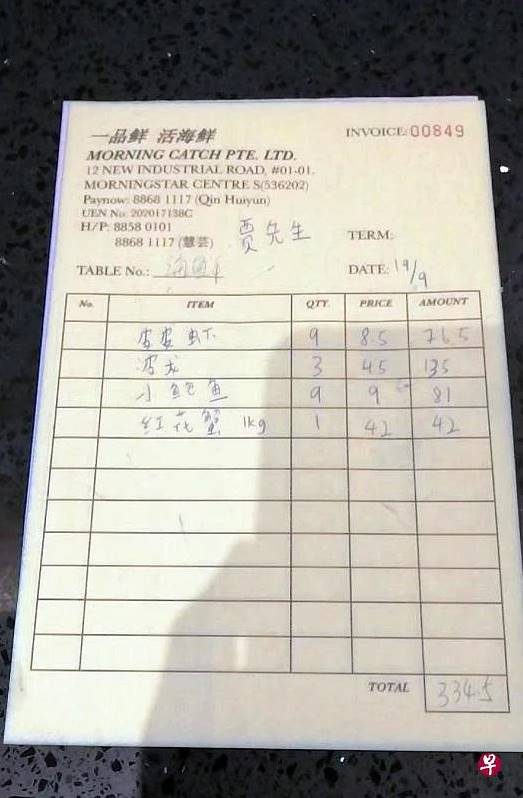 一品鲜 活海鲜
INVOICE:00849
MORNING CATCH PTE. LTD.
12 NEW INDUSTRIAL ROAD, #01-01.
MORNINGSTAR CENTRE S(536202)
Paynow: 8868 1117 (Qin Huiyun)
UEN No: 202017138C
H/P: 8858 0101
8868 1117 (慧芸)
贾先生
TERM:
TABLE No.: 海鲜
DATE: 19/9
No. ITEM QTY. PRICE AMOUNT
皮皮虾 9 8.5 76.5
波龙 3 45 135
小鲍鱼 9 9 81
红花蟹 1kg 1 42 42
TOTAL 334.5
早